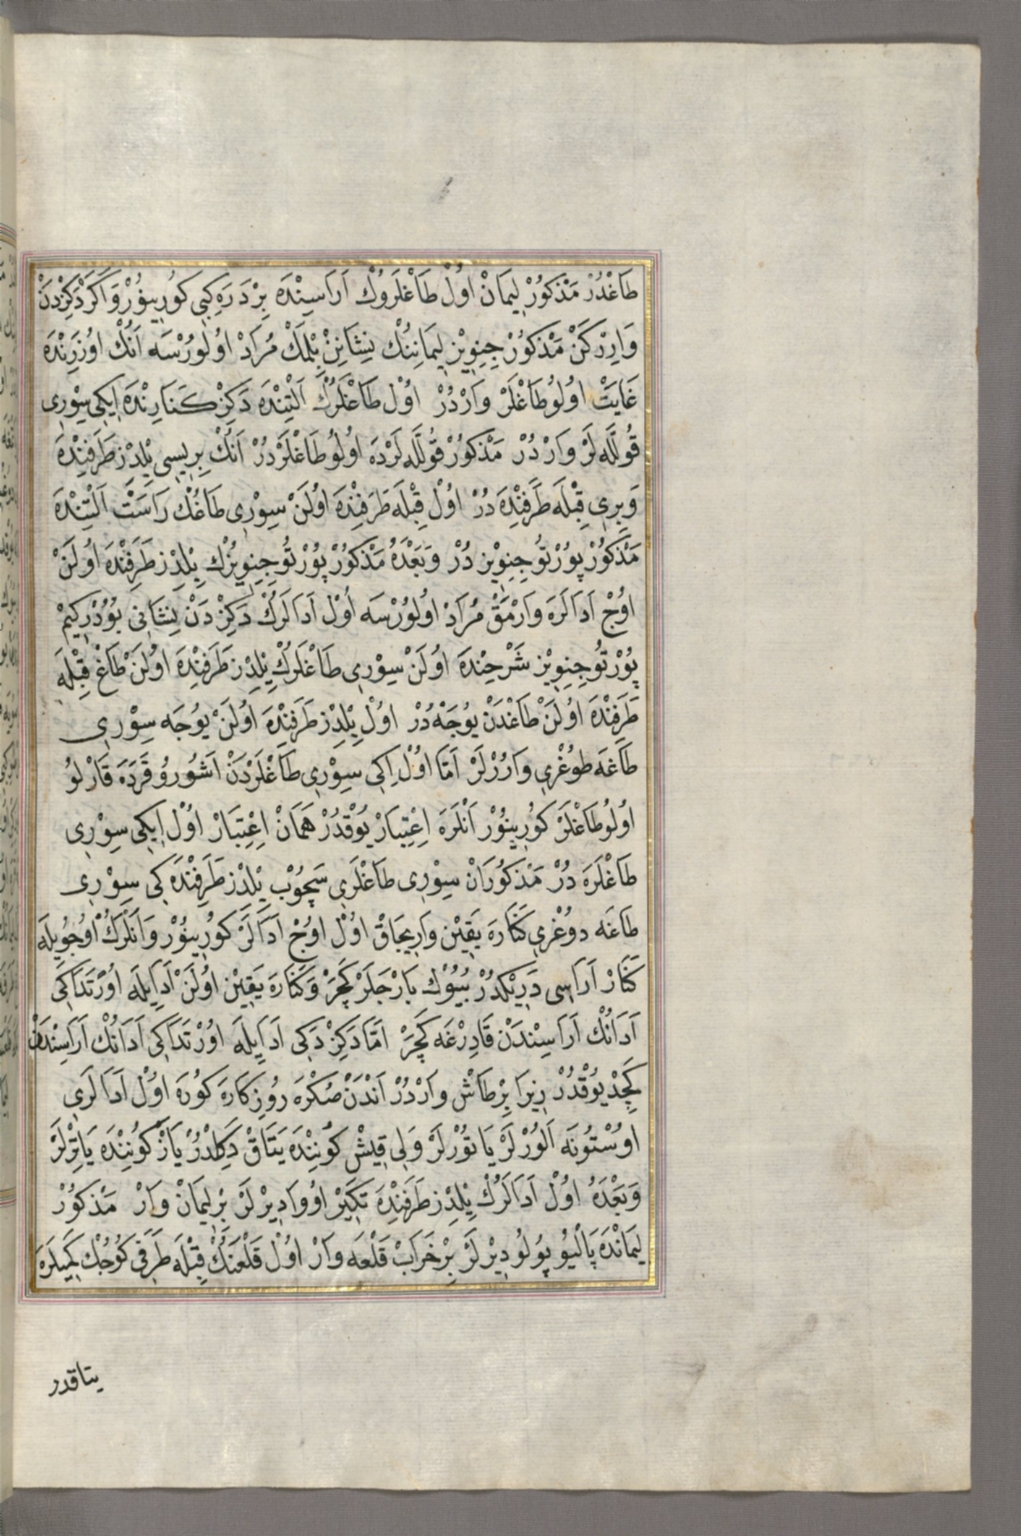 طَاغْدُرْ مَذْكُورْ لِيمَانْ اُولْ طَاغْلَرُوكْ اَرَاسِنْدَه بِرْ دَرَه كِبِى كُورِينُورْ وَاَكَرْ دَكِزْدَنْ
وَارِرْكَنْ مَذْكُورْ جِنِوِيزْ لِيمَانِنُكْ نِشَانِنْ بِلْمَكْ مُرَادْ اُولُورْسَه اَنُكْ اُوزَرِنْدَه
غَايَتْ اُولُو طَاغْلَرْ وَارْدُرْ اُولْ طَاغْلَرُكْ اَلْتِنْدَه دَكِزْ كَنَارِنْدَه اِيكِى سِوْرِى
قُولَّه لَرْ وَارْدُرْ مَذْكُورْ قُولَّه لَرْدَه اُولُو طَاغْلَرْدُرْ اَنُكْ بِرِيسِى يِلْدِزْ طَرَفِنْدَه
وَبِرِى قِبْلَه طَرَفِنْدَه دُرْ اُولْ قِبْلَه طَرَفِنْدَه اُولَنْ سِوْرِى طَاغُكْ رَاسْتْ اَلْتِنْدَه
مَذْكُورْ پُورْتُو جِنِوِيزْ دُرْ وَبَعْدَهُ مَذْكُورْ پُورْتُو جِنِوِيزُكْ يِلْدِزْ طَرَفِنْدَه اُولَنْ
اُوچْ اَدَالَرَه وَارْمَقْ مُرَادْ اُولُورْسَه اُولْ اَدَالَرُكْ دَكِزْدَنْ نِشَانِى بُودُرْكِيمْ
پُورْتُو جِنِوِيزْ شَرْحِنْدَه اُولَنْ سِوْرِى طَاغْلَرُكْ يِلْدِزْ طَرَفِنْدَه اُولَنْ طَاغْ قِبْلَه
طَرَفِنْدَه اُولَنْ طَاغْدَنْ يُوجَه دُرْ اُولْ يِلْدِزْ طَرَفِنْدَه اُولَنْ يُوجَه سِوْرِى
طَاغَه طُوغْرِى وَارُرْلَرْ اَمَّا اُولْ اِكِى سِوْرِى طَاغْلَرْدَنْ اَشُورُو قَرَدَه قَارْلُو
اُولُو طَاغْلَرْ كُورِينُورْ اَنْلَرَه اِعْتِبَارْ يُوقْدُرْ هَمَانْ اِعْتِبَارْ اُولْ اِيكِى سِوْرِى
طَاغْلَرَه دُرْ مَذْكُورَانْ سِوْرِى طَاغْلَرِى سَچُوبْ يِلْدِزْ طَرَفِنْدَه كِى سِوْرِى
طَاغَه دُوغْرِى كَنَارَه يَقِينْ وَارِيجَاقْ اُولْ اُوچْ اَدَالَرْ كُورِينُورْ وَاَنْلَرُكْ اُوجُويلَه
كَنَارْ اَرَاسِى دَرِينْكَدُرْ بُيُوكْ بَارْجَلَرْ كَچَرْ وَكَنَارَه يَقِينْ اُولَنْ اَدَايِلَه اُورْتَدَاكِى
اَدَانُكْ اَرَاسِنْدَنْ قَادِرْغَه كَچَرْ اَمَّا دَكِزْدَكِى اَدَايِلَه اُورْتَدَاكِى اَدَانُكْ اَرَاسِنْدَنْ
كَچِدْ يُوقْدُرْ زِيرَا بِرْ طَاشْ وَارْدُرْ اَنْدَنْ صُكْرَه رُوزِكَارَه كُورَه اُولْ اَدَالَرِى
اُوسْتُونَه اَلُورْلَرْ يَاتُورْلَرْ وَلِى قِيشْ كُونِنْدَه يَتَاقْ دَكِلْدُرْ يَازْ كُونِنْدَه يَاتِرْلَرْ
وَبَعْدَهُ اُولْ اَدَالَرُكْ يِلْدِزْ طَرَفِنْدَه تَكِيرْ اُووَا دِيرْلَرْ بِرْ لِيمَانْ وَارْ مَذْكُورْ
لِيمَانْدَه پَالْيُو پُولُو دِيرْلَرْ بِرْ خَرَابْ قَلْعَه وَارْ اُولْ قَلْعَنُكْ قِبْلَه طَرَفِى كُوچُكْ كَمِيلَرَه
يتاقدر